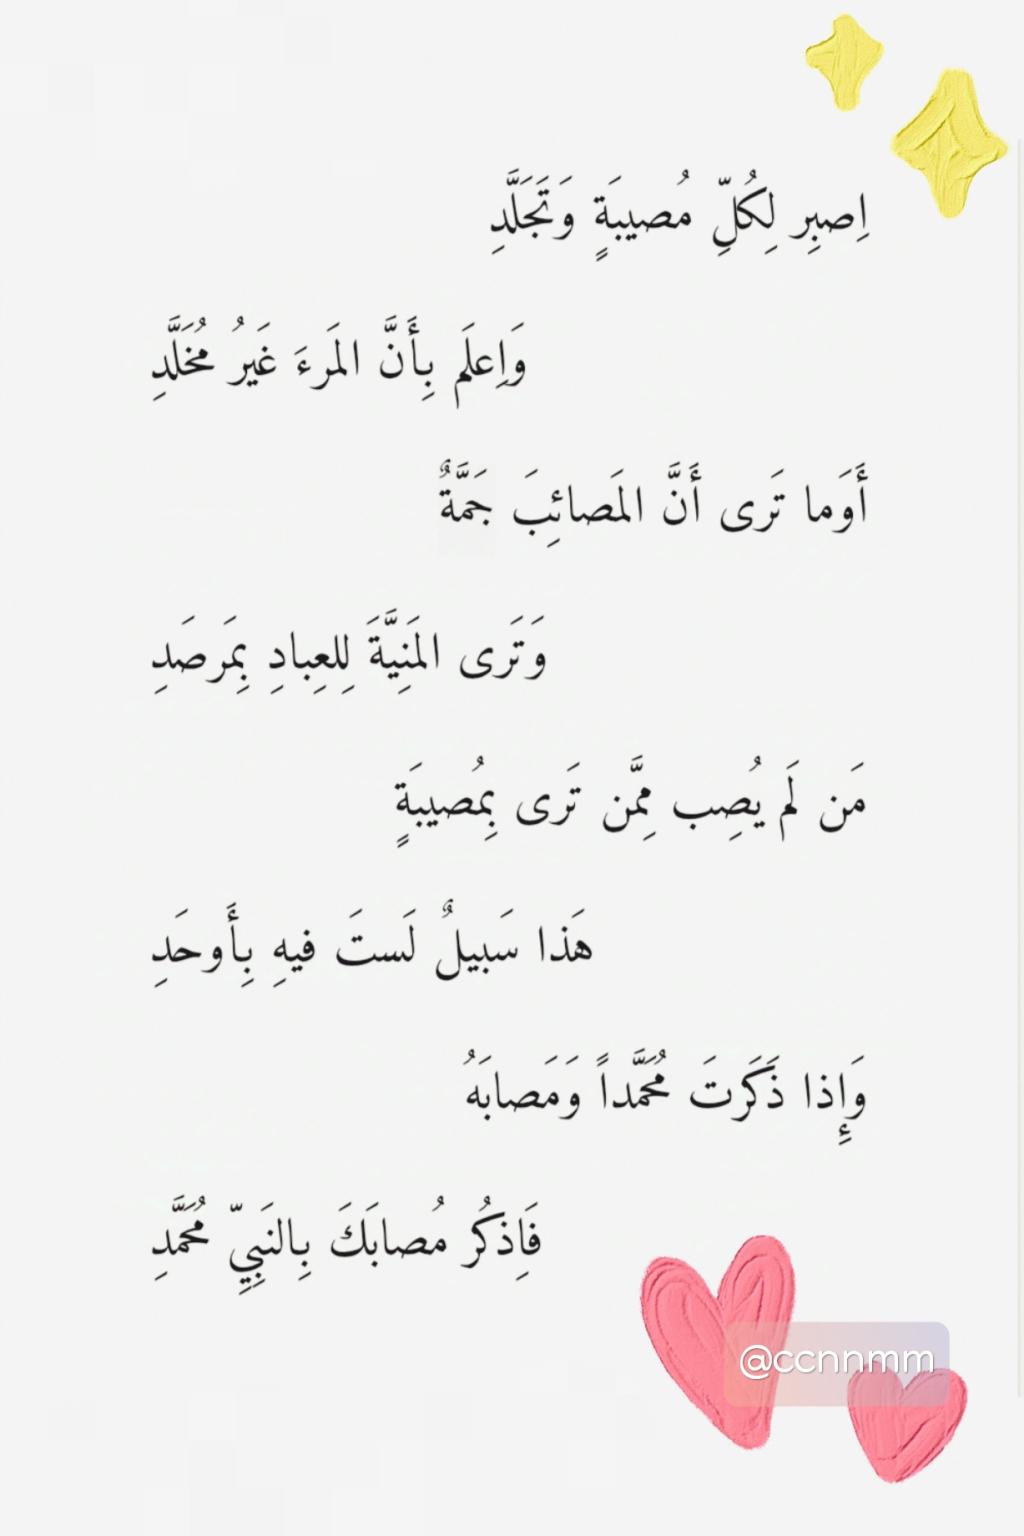 اِصبِر لِكُلِّ مُصيبَةٍ وَتَجَلَّدِ
وَاِعلَم بِأَنَّ المَرءَ غَيرُ مُخَلَّدِ
أَوَما تَرى أَنَّ المَصائِبَ جَمَّةٌ
وَتَرى المَنِيَّةَ لِلعِبادِ بِمَرصَدِ
مَن لَم يُصِب مِمَّن تَرى بِمُصيبَةٍ
هَذا سَبيلٌ لَستَ فيهِ بِأَوحَدِ
وَإِذا ذَكَرتَ مُحَمَّداً وَمَصابَهُ
فَاِذكُر مُصابَكَ بِالنَبِيِّ مُحَمَّدِ
@ccnnmm